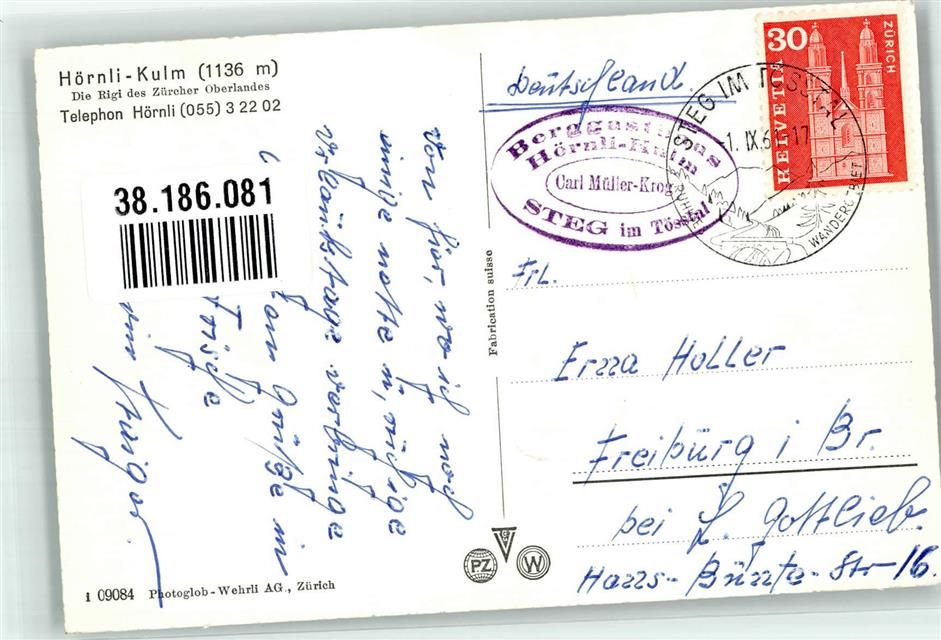 Hörnli-Kulm (1136 m)
Die Rigi des Zürcher Oberlandes
Telephon Hörnli (055) 3 22 02
38.186.081
Von hier, wo ich noch
einige nette, ruhige
Urlaubstage verbringe
Grüße
Deutschland.
30
HELVETIA
ZÜRICH
STEG IM TÖSSTAL
1. IX. 6 -17
WANDERGEBIET
Berggasthaus
Hörnli-Kulm
Carl Müller-Krog
STEG im Tösstal
Fabrication suisse
Frl.
Erna Holler
Freiburg i Br.
bei L. Gottlieb.
Hans-Bunte-Str-16.
PZ
W
i 09084 Photoglob-Wehrli AG., Zürich